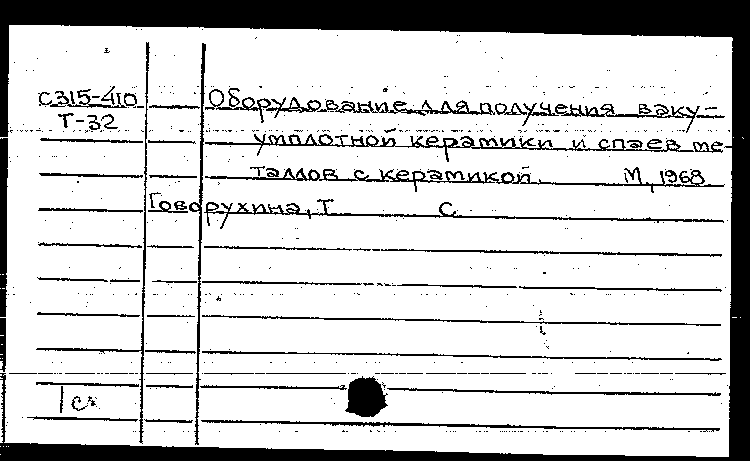 С315-410 Оборудование для получения ваку-
Т-32 умплотной керамики и спаев ме-
таллов с керамикой. М., 1968
Говорухина, Т С.